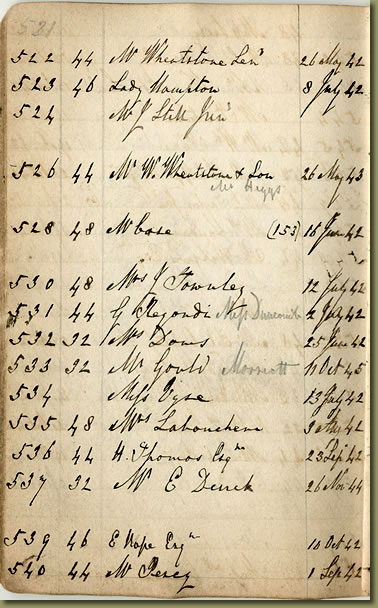 521
522 44 Mr Wheatstone Senr 26 May 42
523 46 Lady Hampton 8 July 42
524 Mr J Still Junr
526 44 Mr W. Wheatstone & Son 26 May 43
Mr Higgs
528 48 Mr Case (153) 16 June 42
530 48 Mrs J Townley 12 July 42
531 44 G Regondi Miss Duncombe 2 July 42
532 32 Mrs Dows 25 June 42
533 32 Mr Gould Marriott 11 Oct 45
534 Miss Vyse 13 July 42
535 48 Mrs Labouchere 3 42
536 44 H. Thomas Esqre 23 Sep 42
537 32 Mr E Derrick 26 Nov 44
539 46 E Hope Esqre 10 Oct 42
540 44 Mr Percy 1 Sep 42